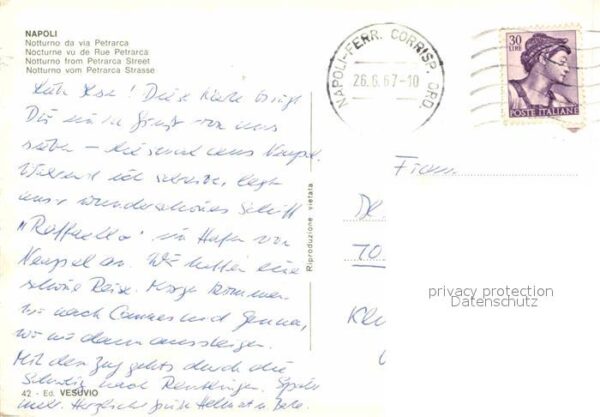 NAPOLI
Notturno da via Petrarca
Nocturne vu de Rue Petrarca
Notturno from Petrarca Street
Notturno vom Petrarca Strasse
! Diese Karte bringt
Dir von uns
aus Neapel.
Während ich schreibe, legt
unser wunderschönes Schiff
"Raffaello" im Hafen von
Neapel an. Wir hatten eine
schöne Reise. Morgen kommen
wir nach Cannes und Genua,
wo wir dann aussteigen.
Mit dem Zug gehts durch die
Schweiz nach Reutlingen. Später
mehr. Herzliche Grüße Helmut u.
42 - Ed. VESUVIO
Riproduzione vietata
NAPOLI-FERR. CORRISP. ORD.
26.6.67-10
30
LIRE
POSTE ITALIANE
70
privacy protection
Datenschutz